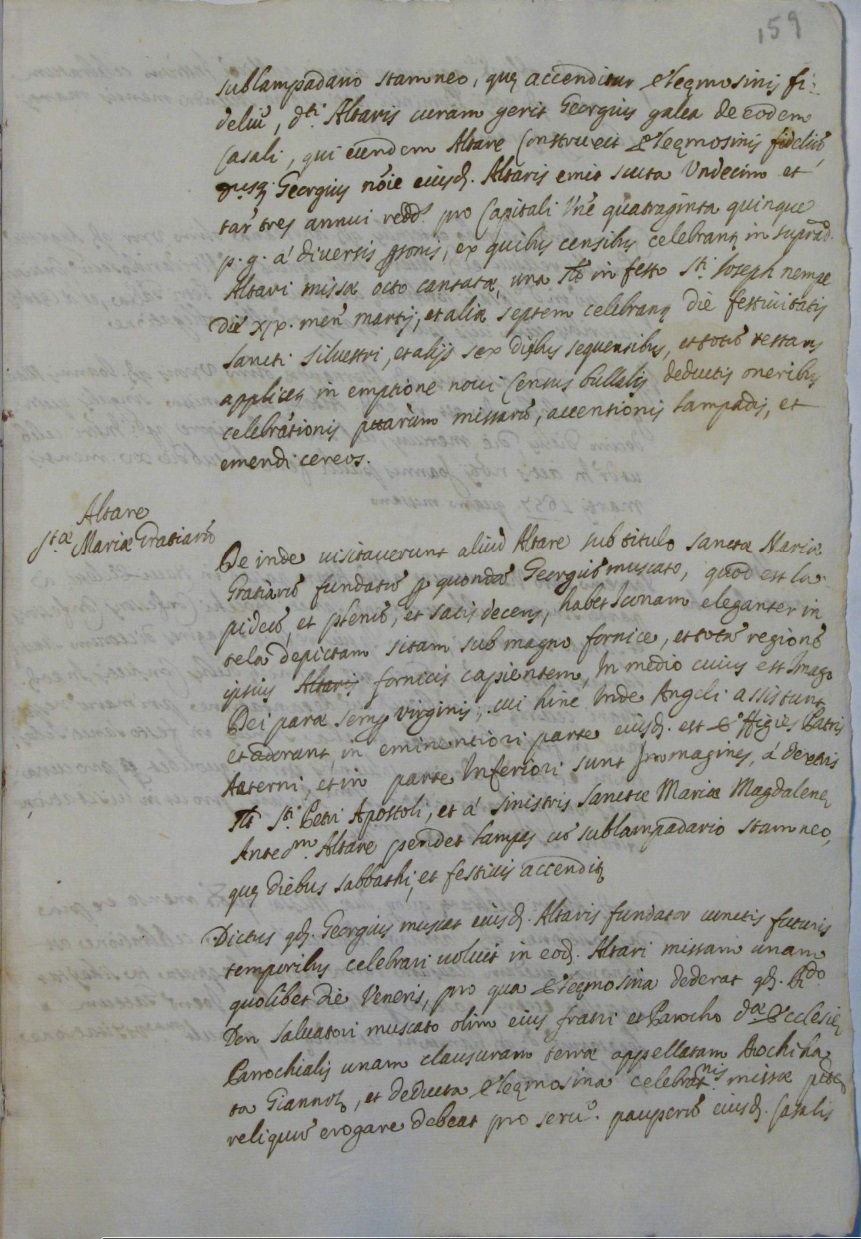 159
sublampadario stamneo, quę accenditur Elęęmosinis fi-
deliũ, dti. Altaris curam gerit Georgius galea de eodem
Casali, qui eundem Altare Construxit Elęęmosinis fideliũ,
Georgius nõie eiusd. Altaris emit scuta Undecim et
tar. tres annui redd. pro Capitali Unc. quatraginta quinque
p. g. à diversis psonis, ex quibus censibus celebrant in suprad.
Altari missæ octo cantatæ, una in festo Sti. Ioseph nempe
Die xjx. men. martij, et aliæ septem celebrant die festiuitatis
Sancti Siluestri, et alijs sex diebus sequentibus, et totũ restans
applicet in emptione noui Census bullalis deductis oneribus
celebrationis missarũ, accentionis lampadis, et
emendi cereos.
Altare
Stæ Mariæ Gratiarũ
De inde uisitauerunt aliud Altare sub titulo Sanctæ Mariæ
Gratiarũ fundatũ p quondã Georgiũ muscato, quod est la-
pideũ, et plenũ, et satis decens, habet Iconam eleganter in
tela depictam sitam sub magno fornice, et totã regionẽ
ipsius Altaris fornicis capientem, In medio cuius est Imago
Dei paræ semp virginis, cui hinc Inde Angeli assistunt
et adorant, in eminentiori parte eiusd. est Effigies Patris
Aeterni, et in parte Inferiori sunt Immagines, à dextris
Sti. Petri Apostoli, et à sinistris Sanctæ Mariæ Magdalenę
Ante dm. Altare pendet lampas cũ sublampadario stamneo,
quę diebus sabbathi, et festiuis accendit
Dictus qd. Georgius muscat eiusd. Altaris fundator cunctis futuris
temporibus celebrari uoluit in eod. Altari missam unam
quolibet die Veneris, pro qua Elęęmosina dederat qd. Rdo
Don Saluatori muscato olim eius fratri et Parocho dæ Ecclesię
Parrochialis unam clausuram terræ appellatam
ta Gianno, et deducta Elęęmosina celebratnis missæ
reliquũ erogare debeat pro seruo. pauperũ eiusd. Casalis